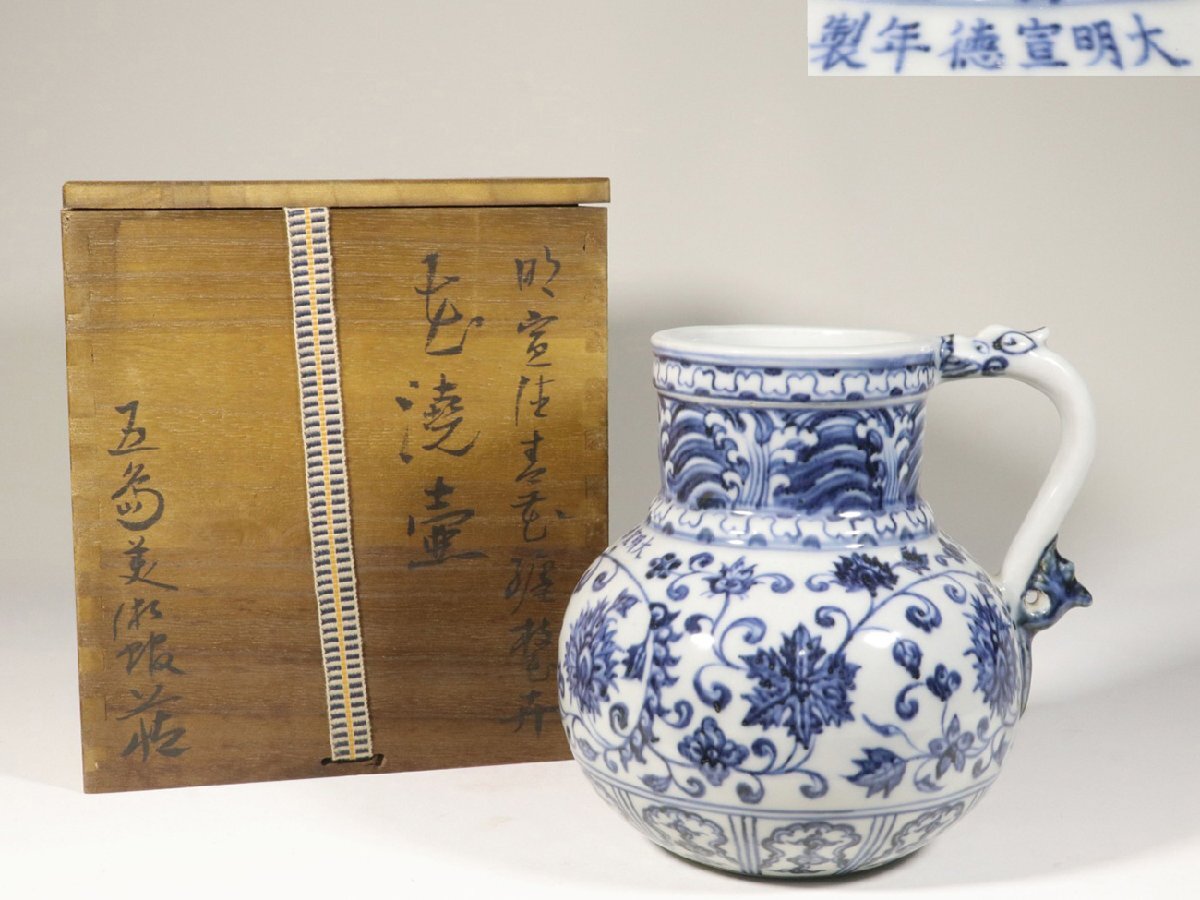 大明宣德年製
明宣德青花纏枝卉
花澆壺
五島美術館藏
大明宣